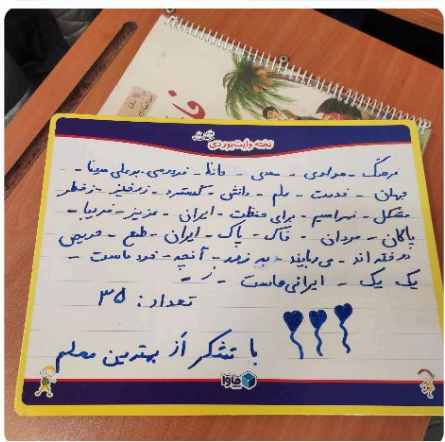 فا
تخته وایت‌بوردی
فرهنگ - مولوی - سعدی - حافظ - فردوسی - بوعلی سینا -
جهان - خدمت - علم - دانش - گسترده - زرخیز - خطر
مشکل - نهراسیم - برای حفظت - ایران - عزیز - مرحبا -
پاکان - مردان - خاک - پاک - ایران - طمع - حریص
دوخته اند - می ربایند - به زحمت - آنچه - خداست -
یک یک - ایرانی هاست -
تعداد : ۳۵
با تشکر از بهترین معلم
جاوا